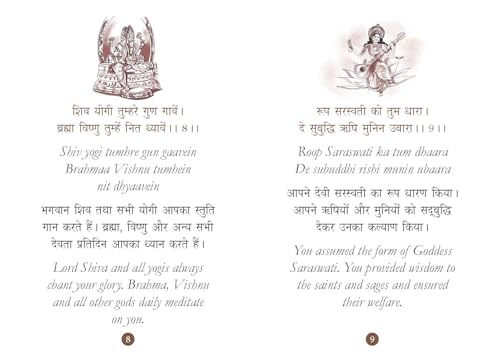 शिव योगी तुम्हरे गुण गावें।
ब्रह्मा विष्णु तुम्हें नित ध्यावें।। 8।।
Shiv yogi tumhre gun gaavein
Brahmaa Vishnu tumhein
nit dhyaavein
भगवान शिव तथा सभी योगी आपका स्तुति
गान करते हैं। ब्रह्मा, विष्णु और अन्य सभी
देवता प्रतिदिन आपका ध्यान करते हैं।
Lord Shiva and all yogis always
chant your glory. Brahma, Vishnu
and all other gods daily meditate
on you.
8
रूप सरस्वती को तुम धारा।
दे सुबुद्धि ऋषि मुनिन उबारा।। 9।।
Roop Saraswati ka tum dhaara
De subuddhi rishi munin ubaara
आपने देवी सरस्वती का रूप धारण किया।
आपने ऋषियों और मुनियों को सद्बुद्धि
देकर उनका कल्याण किया।
You assumed the form of Goddess
Saraswati. You provided wisdom to
the saints and sages and ensured
their welfare.
9